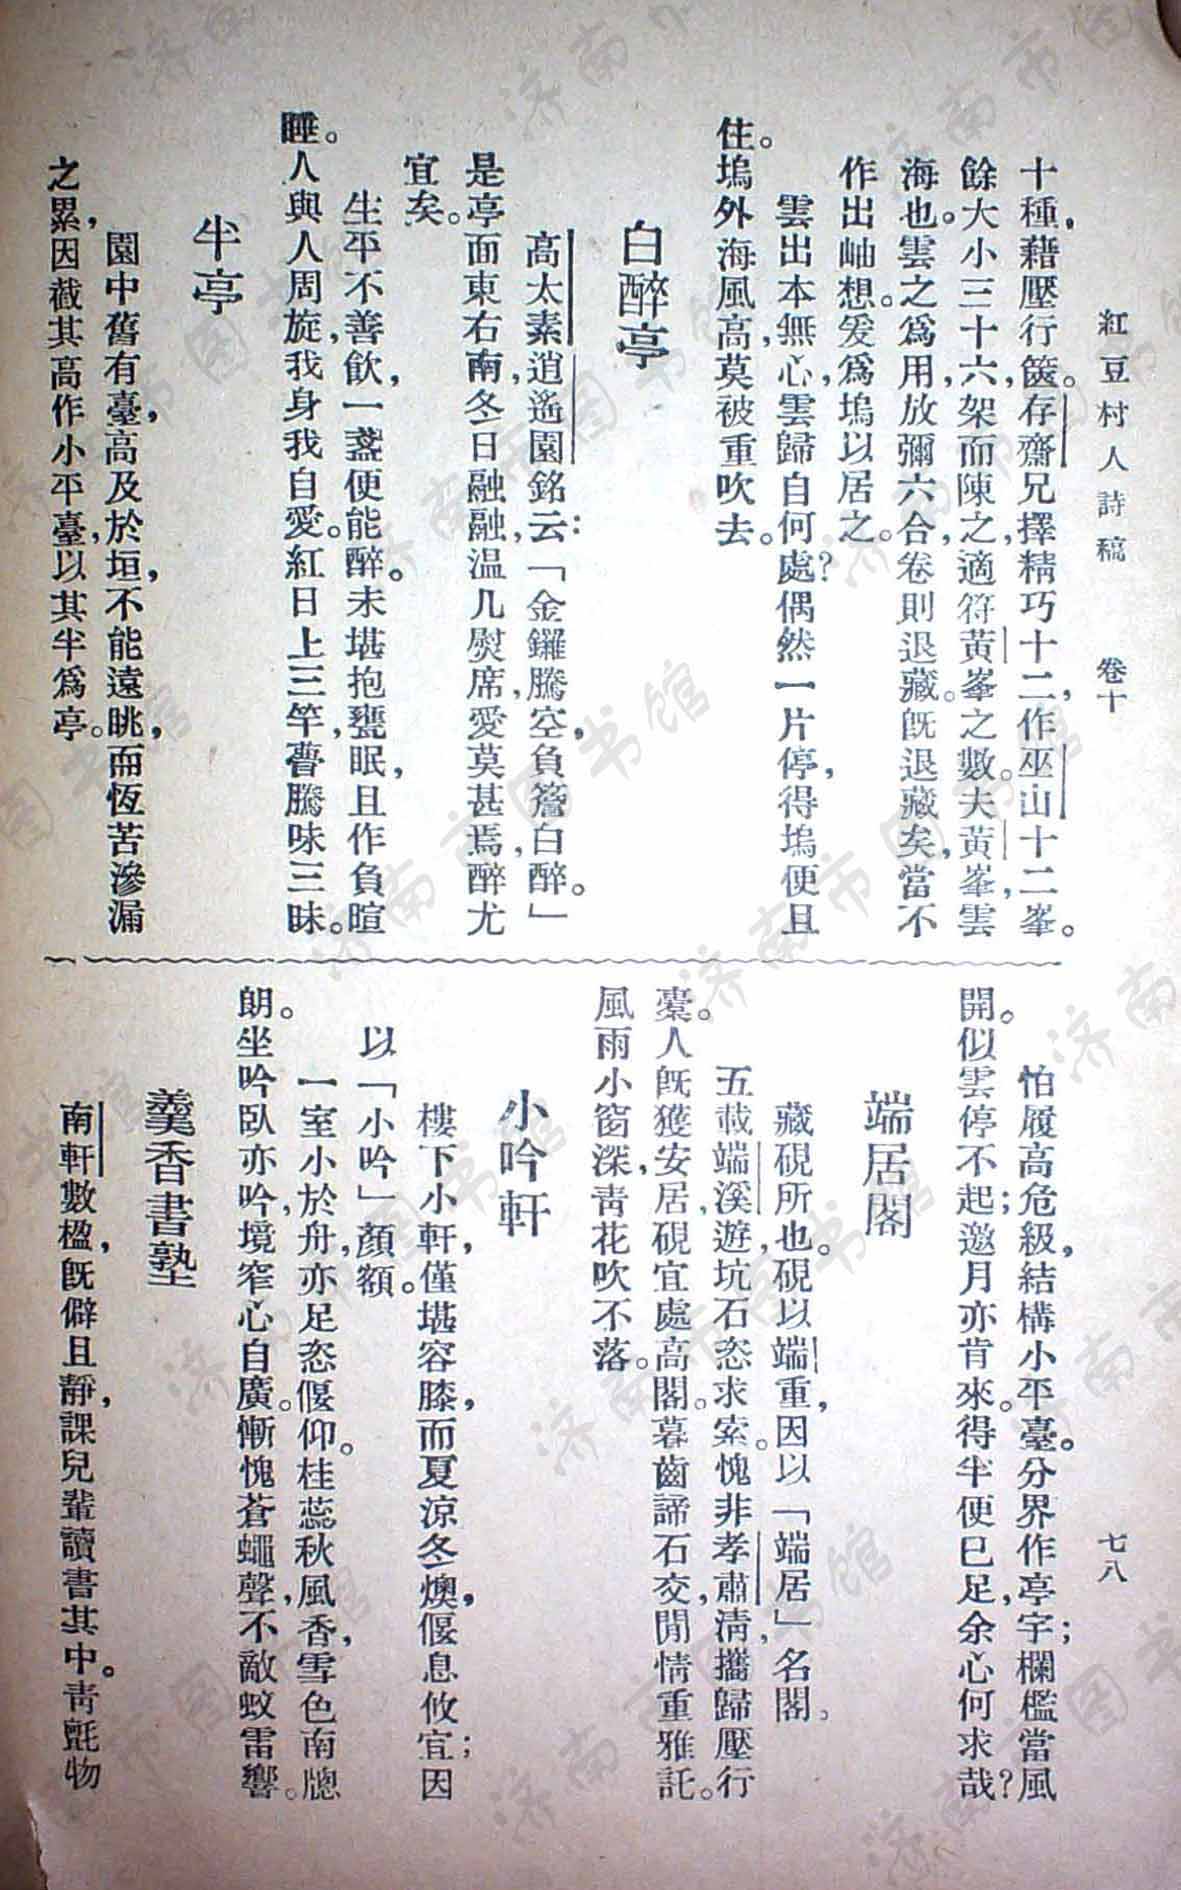 紅豆村人詩稿　卷十　七八
十種，藉壓行篋。存齋兄擇精巧十二，作巫山十二峯。
餘大小三十六，架而陳之，適符黃峯之數。夫黃峯，雲
海也。雲之爲用，放彌六合，卷則退藏。旣退藏矣，當不
作出岫想。爰爲塢以居之。
雲出本無心，雲歸自何處？偶然一片停，得塢便且
住。塢外海風高，莫被重吹去。
白醉亭
高太素逍遙園銘云：「金鑼騰空，負簷白醉。」
是亭面東右南，冬日融融，温几熨席，愛莫甚焉，醉尤
宜矣。
生平不善飲，一盞便能醉。未堪抱甕眠，且作負暄
睡。人與人周旋，我身我自愛。紅日上三竿，瞢騰味三昧。
半亭
園中舊有臺，高及於垣，不能遠眺，而恆苦滲漏
之累，因截其高作小平臺，以其半爲亭。
怕履高危級，結構小平臺。分界作亭宇；欄檻當風
開。似雲停不起；邀月亦肯來。得半便已足，余心何求哉？
端居閣
藏硯所也。硯以端重，因以「端居」名閣。
五載端溪遊，坑石恣求索。愧非孝肅淸，攜歸壓行
橐。人旣獲安居，硯宜處高閣。暮齒諦石交，閒情重雅託。
風雨小窗深，靑花吹不落。
小吟軒
樓下小軒，僅堪容膝，而夏涼冬燠，偃息攸宜；因
以「小吟」顏額。
一室小於舟，亦足恣偃仰。桂蕊秋風香，雪色南牕
朗。坐吟臥亦吟，境窄心自廣。慚愧蒼蠅聲，不敵蚊雷響。
羹香書塾
南軒數楹，旣僻且靜，課兒輩讀書其中。靑氈物